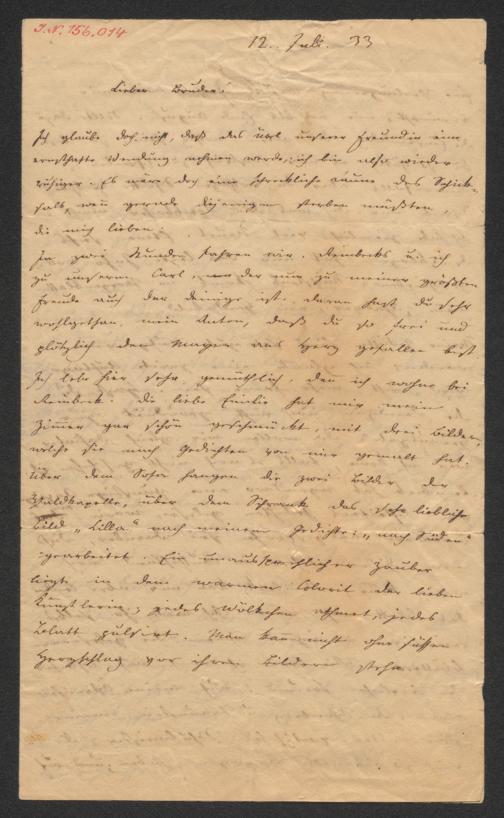 J.N. 156.014
12. Juli. 33
Lieber Bruder!
Ich glaube doch nicht, daß das Übel unserer Freundin eine
ernsthafte Wendung nehmen werde, ich bin also wieder
ruhiger. Es wäre doch eine schreckliche Laune des Schick-
sals, wenn gerade diejenigen sterben müßten,
die mich lieben.
In zwei Stunden fahren wir, Reinbecks u. ich
zu unserem Carl, der nun zu meiner größten
Freude auch der Deinige ist. Daran hast du sehr
wohlgethan, mein Anton, daß du so frei und
plötzlich dem Mayer ans Herz gefallen bist.
Ich lebe hier sehr gemüthlich, denn ich wohne bei
Reinbeck. Die liebe Emilie hat mir mein
Zimmer gar schön geschmückt, mit drei Bildern,
welche sie nach Gedichten von mir gemalt hat.
Über dem Sofa hangen die zwei Bilder der
Waldkapelle, über dem Schrank das sehr liebliche
Bild „Lilla" nach meinem Gedichte: „nach Süden"
gearbeitet. Ein unaussprechlicher Zauber
liegt in dem warmen Colorit der lieben
Künstlerin; jedes Wölkchen athmet, jedes
Blatt pulsirt. Man kann nicht ohne süßen
Herzschlag vor ihren Bildern stehn